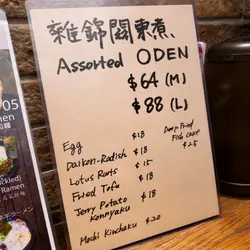 雜錦關東煮
Assorted ODEN
$64 (M)
$88 (L)
Egg $18
Daikon-Radish $18
Lotus Roots $15
Fried Tofu $18
Jerry Potato $18
Konnyaku
Mochi Kinchaku $20
Deep Fried
Fish Cake
$25
05
Ramen